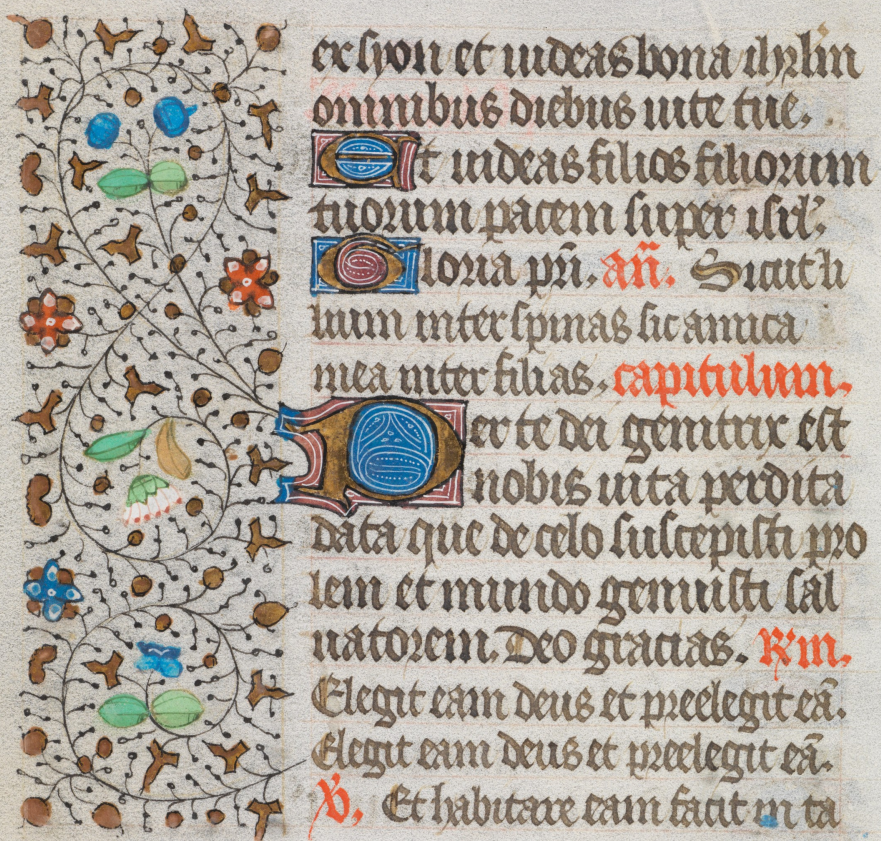 ex syon et uideas bona ihrlm
omnibus diebus uite tue.
Et uideas filios filiorum
tuorum pacem super isrl.
Gloria pr̄i. an̄. Sicut li
lium inter spinas sic amica
mea inter filias. capitulum.
Per te dei genitrix est
nobis uita perdita
data que de celo suscepisti pro
lem et mundo genuisti sal
uatorem. Deo gracias. R'm.
Elegit eam deus et preelegit eā.
Elegit eam deus et preelegit eā.
V. Et habitare eam facit in ta